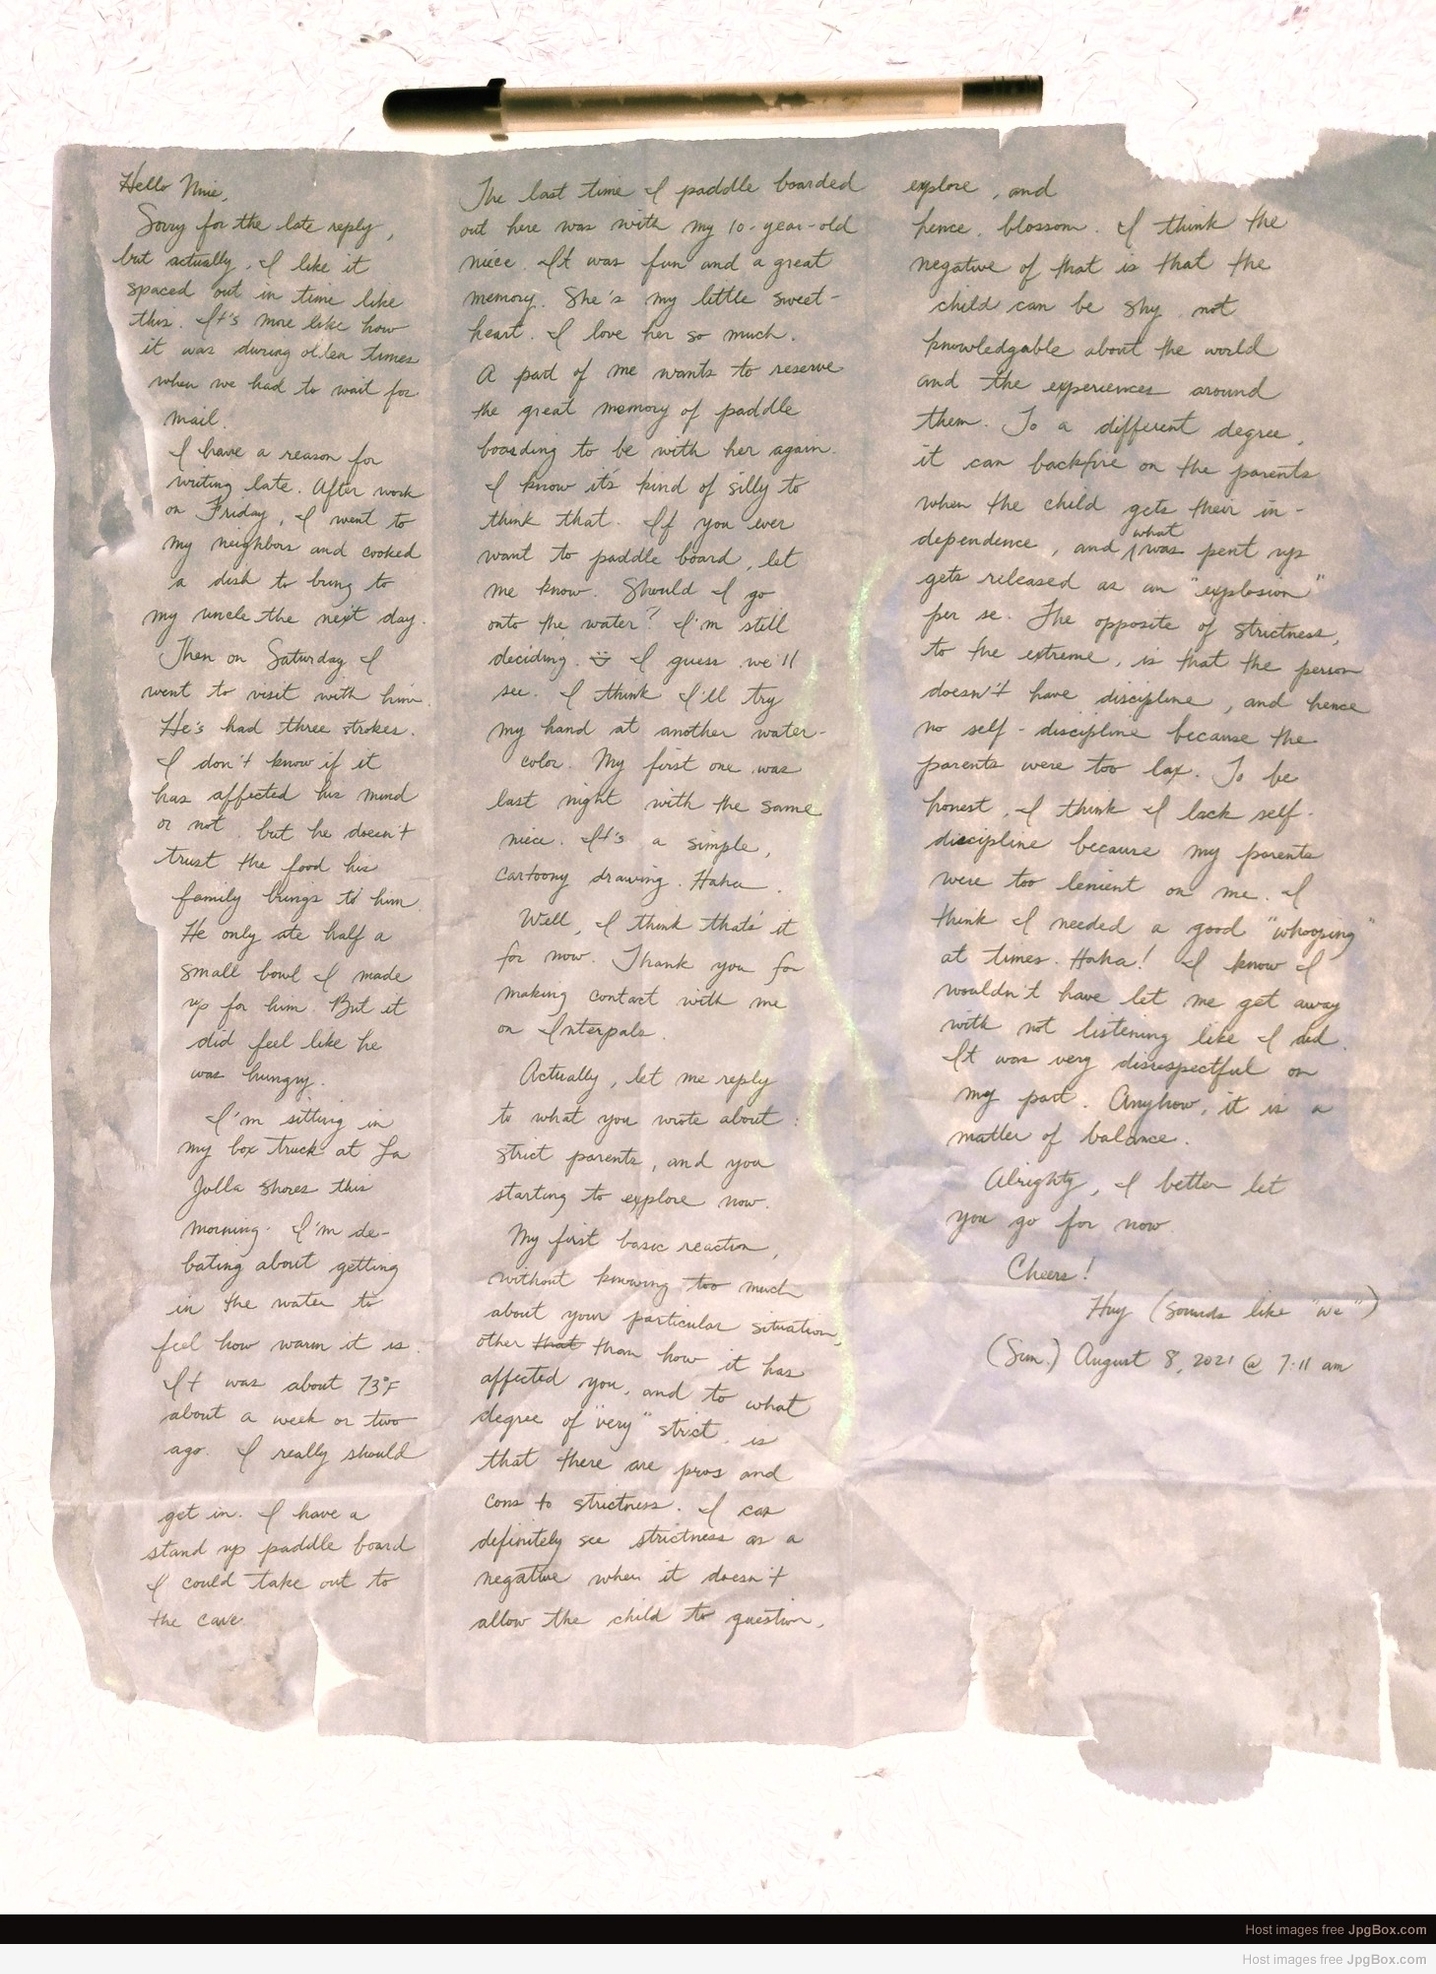 Hello Nnie,
Sorry for the late reply,
but actually, I like it
spaced out in time like
this. It's more like how
it was during olden times
when we had to wait for
mail.
I have a reason for
writing late. After work
on Friday, I went to
my neighbors and cooked
a dish to bring to
my uncle the next day.
Then on Saturday I
went to visit with him.
He's had three strokes.
I don't know if it
has affected his mind
or not, but he doesn't
trust the food his
family brings to him.
He only ate half a
small bowl I made
up for him. But it
did feel like he
was hungry.
I'm sitting in
my box truck at La
Jolla Shores this
morning. I'm de-
bating about getting
in the water to
feel how warm it is.
It was about 73°F
about a week or two
ago. I really should
get in. I have a
stand up paddle board
I could take out to
the cave.
The last time I paddle boarded
out here was with my 10-year-old
niece. It was fun and a great
memory. She's my little sweet-
heart. I love her so much.
A part of me wants to reserve
the great memory of paddle
boarding to be with her again.
I know it's kind of silly to
think that. If you ever
want to paddle board, let
me know. Should I go
onto the water? I'm still
deciding. I guess we'll
see. I think I'll try
my hand at another water-
color. My first one was
last night with the same
niece. It's a simple,
cartoony drawing. Haha.
Well, I think that's it
for now. Thank you for
making contact with me
on Interpals.
Actually, let me reply
to what you wrote about:
strict parents, and you
starting to explore now.
My first basic reaction,
without knowing too much
about your particular situation,
other that than how it has
affected you, and to what
degree of "very" strict, is
that there are pros and
cons to strictness. I can
definitely see strictness as a
negative when it doesn't
allow the child to question,
explore, and
hence, blossom. I think the
negative of that is that the
child can be shy, not
knowledgable about the world
and the experiences around
them. To a different degree,
it can backfire on the parents
when the child gets their in-
dependence, and what was pent up
gets released as an "explosion"
per se. The opposite of strictness,
to the extreme, is that the person
doesn't have discipline, and hence
no self-discipline because the
parents were too lax. To be
honest, I think I lack self-
discipline because my parents
were too lenient on me. I
think I needed a good "whooping"
at times. Haha! I know I
wouldn't have let me get away
with not listening like I did.
It was very disrespectful on
my part. Anyhow, it is a
matter of balance.
Alrighty, I better let
you go for now.
Cheers!
Huy (sounds like "we")
(Sun.) August 8, 2021 @ 7:11 am
Host images free JpgBox.com
Host images free JpgBox.com